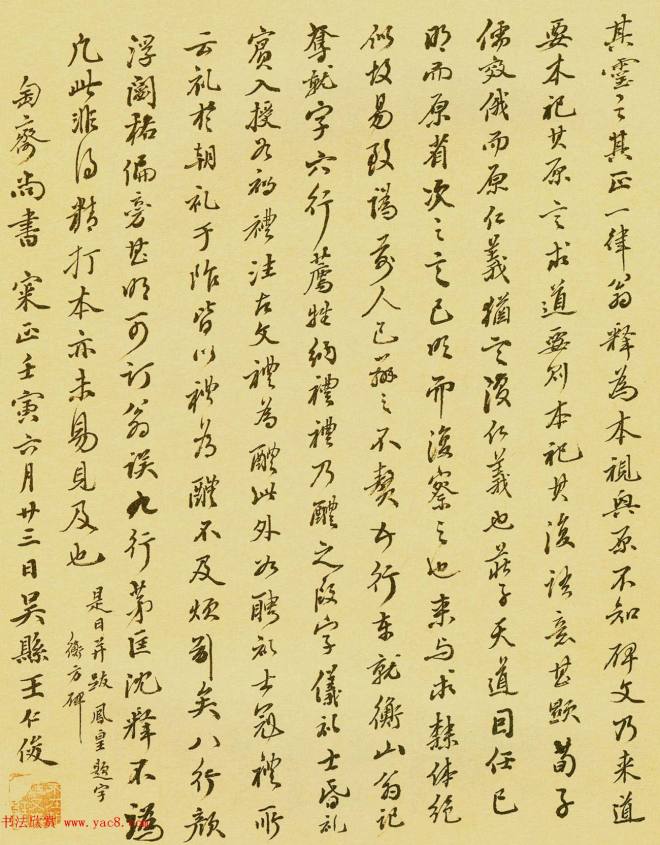 其靈之其正一律翁釋為本視與原不知碑文乃来道
要本祀其原言求道要則本祀其復語意甚顯荀子
儒效俄而原仁義猶言復仁義也莊子天道因任已
明而原省次之言已明而復察之也来与求隸体絕
似故易致譌前人已辯之不贅五行奉就衡山翁記
奪就字六行薦牲納禮禮乃醴之叚字儀礼士昏礼
賓入授如初禮注古文禮為醴此外如聘礼士冠禮所
云礼於朝礼于阼皆以禮為醴不及煩剟矣八行顏
浮闓祏偏旁甚明可訂翁誤九行第匡沈釋不譌
凡此非得精打本亦未易見及也
是日并跋鳳皇題字
衡方碑
匋齋尚書 寀正壬寅六月廿三日吳縣王仁俊
书法欣赏 www.yac8.com